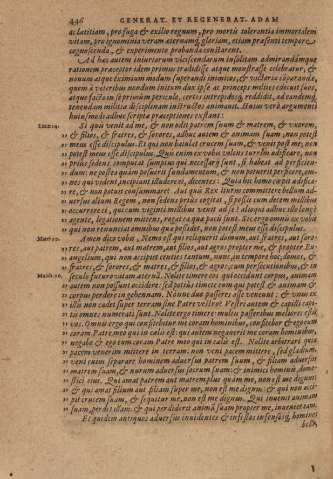 446 GENERAT. ET REGENERAT. ADAM
ac latitiam, pro fuga & exilio regnum, pro mortis tolerantia immortalem
vitam, pro ignominia veram æternamq; gloriam, etiam præsenti tempore
cognoscenda, & experimento probanda constarent.
Ad hæc autem iniuriarum viciscendarum insultam admirandamque
rationem præceptor idem primus tradidisse atque monstrasse celebratur, &
nouum atque eximium modum superandi inimicos, & victoria
quem à veteribus nondum initum dux ipse ac princeps milites edocuit suos,
atque facto in supremum periculo, certis introspiciendū, reddidit, ad eandemq;
tenendum militiæ disciplinam instructos animauit. Huius verò argumenti
huiusmodi adhuc scripta præceptiones exstant:
Luc. 14. Si quis venit ad me, & non odit patrem suum & matrem, & vxorem,
& filios, & fratres, & sorores, adhuc autem & animam suam, non potest
meus esse discipulus. Et qui non baiulat crucem suam, & venit post me, non
potest meus esse discipulus. Quis enim ex vobis volens turrim ædificare, non
prius sedens computat sumptus qui necessarij sunt, si habeat ad perficien-
dum: ne posteaquam posuerit fundamentum, & non potuerit perficere, om-
nes qui vident, incipiant illudere ei, dicentes: Quia hic homo cœpit ædifica-
re, & non potuit consummare. Aut quis Rex iturus committere bellum ad-
uersus alium Regem, non sedens prius cogitat, si possit cum decem millibus
occurrere ei, qui cum viginti millibus venit ad se: alioqui adhuc illo longè
agente, legationem mittens, rogat ea quæ pacis sunt. Sic ergo omnis ex vobis
qui non renunciat omnibus quæ possidet, non potest meus esse discipulus.
Amen dico vobis, Nemo est qui reliquerit domum, aut fratres, aut soro-
res, aut patrem, aut matrem, aut filios, aut agros propter me, & propter Eu-
angelium, qui non accipiet centies tantum, nunc in tempore hoc, domos, &
fratres, & sorores, & matres, & filios, & agros, cum persecutionibus, & in
Matth. 10. seculo futuro vitam æternam. Nolite timere eos qui occidunt corpus, animam
autem non possunt occidere: sed potius timete eum qui potest & animam &
corpus perdere in gehennam. Nonne duo passeres asse veneunt: & vnus ex
illis non cadet super terram sine Patre vestro? Vestri autem & capilli capi-
tis omnes numerati sunt. Nolite ergo timere: multis passeribus meliores estis
vos. Omnis ergo qui confitebitur me coram hominibus, confitebor & ego eum
coram Patre meo qui in cælis est: qui autem negauerit me coram hominibus,
negabo & ego eum coram Patre meo qui in cælis est. Nolite arbitrari quia
pacem venerim mittere in terram: non veni pacem mittere, sed gladium.
veni enim separare hominem aduersus patrem suum, & filiam aduersus
matrem suam, & nurum aduersus socrum suam: & inimici hominis dome-
stici eius. Qui amat patrem aut matrem plus quàm me, non est me dignus:
& qui amat filium aut filiam super me, non est me dignus: & qui non acci-
pit crucem suam, & sequitur me, non est me dignus. Qui inuenit animam
suam, perdet illam: & qui perdiderit animā suam propter me, inueniet eam.
Et quidem antiquos aduersus inuidentes & infestos infensosq; homines